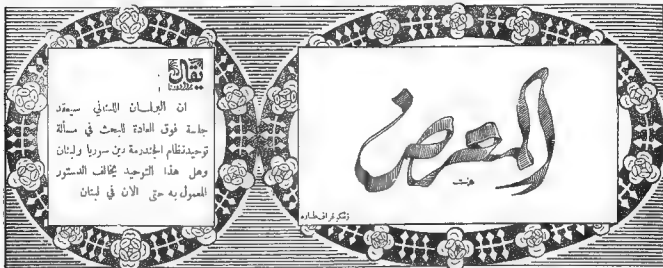 المعرض
يقال
ان البرلمان اللبناني سيعقد
جلسة فوق العادة للبحث في مسألة
توحيد نظام الجندرمة بين سوريا ولبنان
وهل هذا التوحيد يخالف الدستور
المعمول به حتى الان في لبنان
زنكوغراف طباره